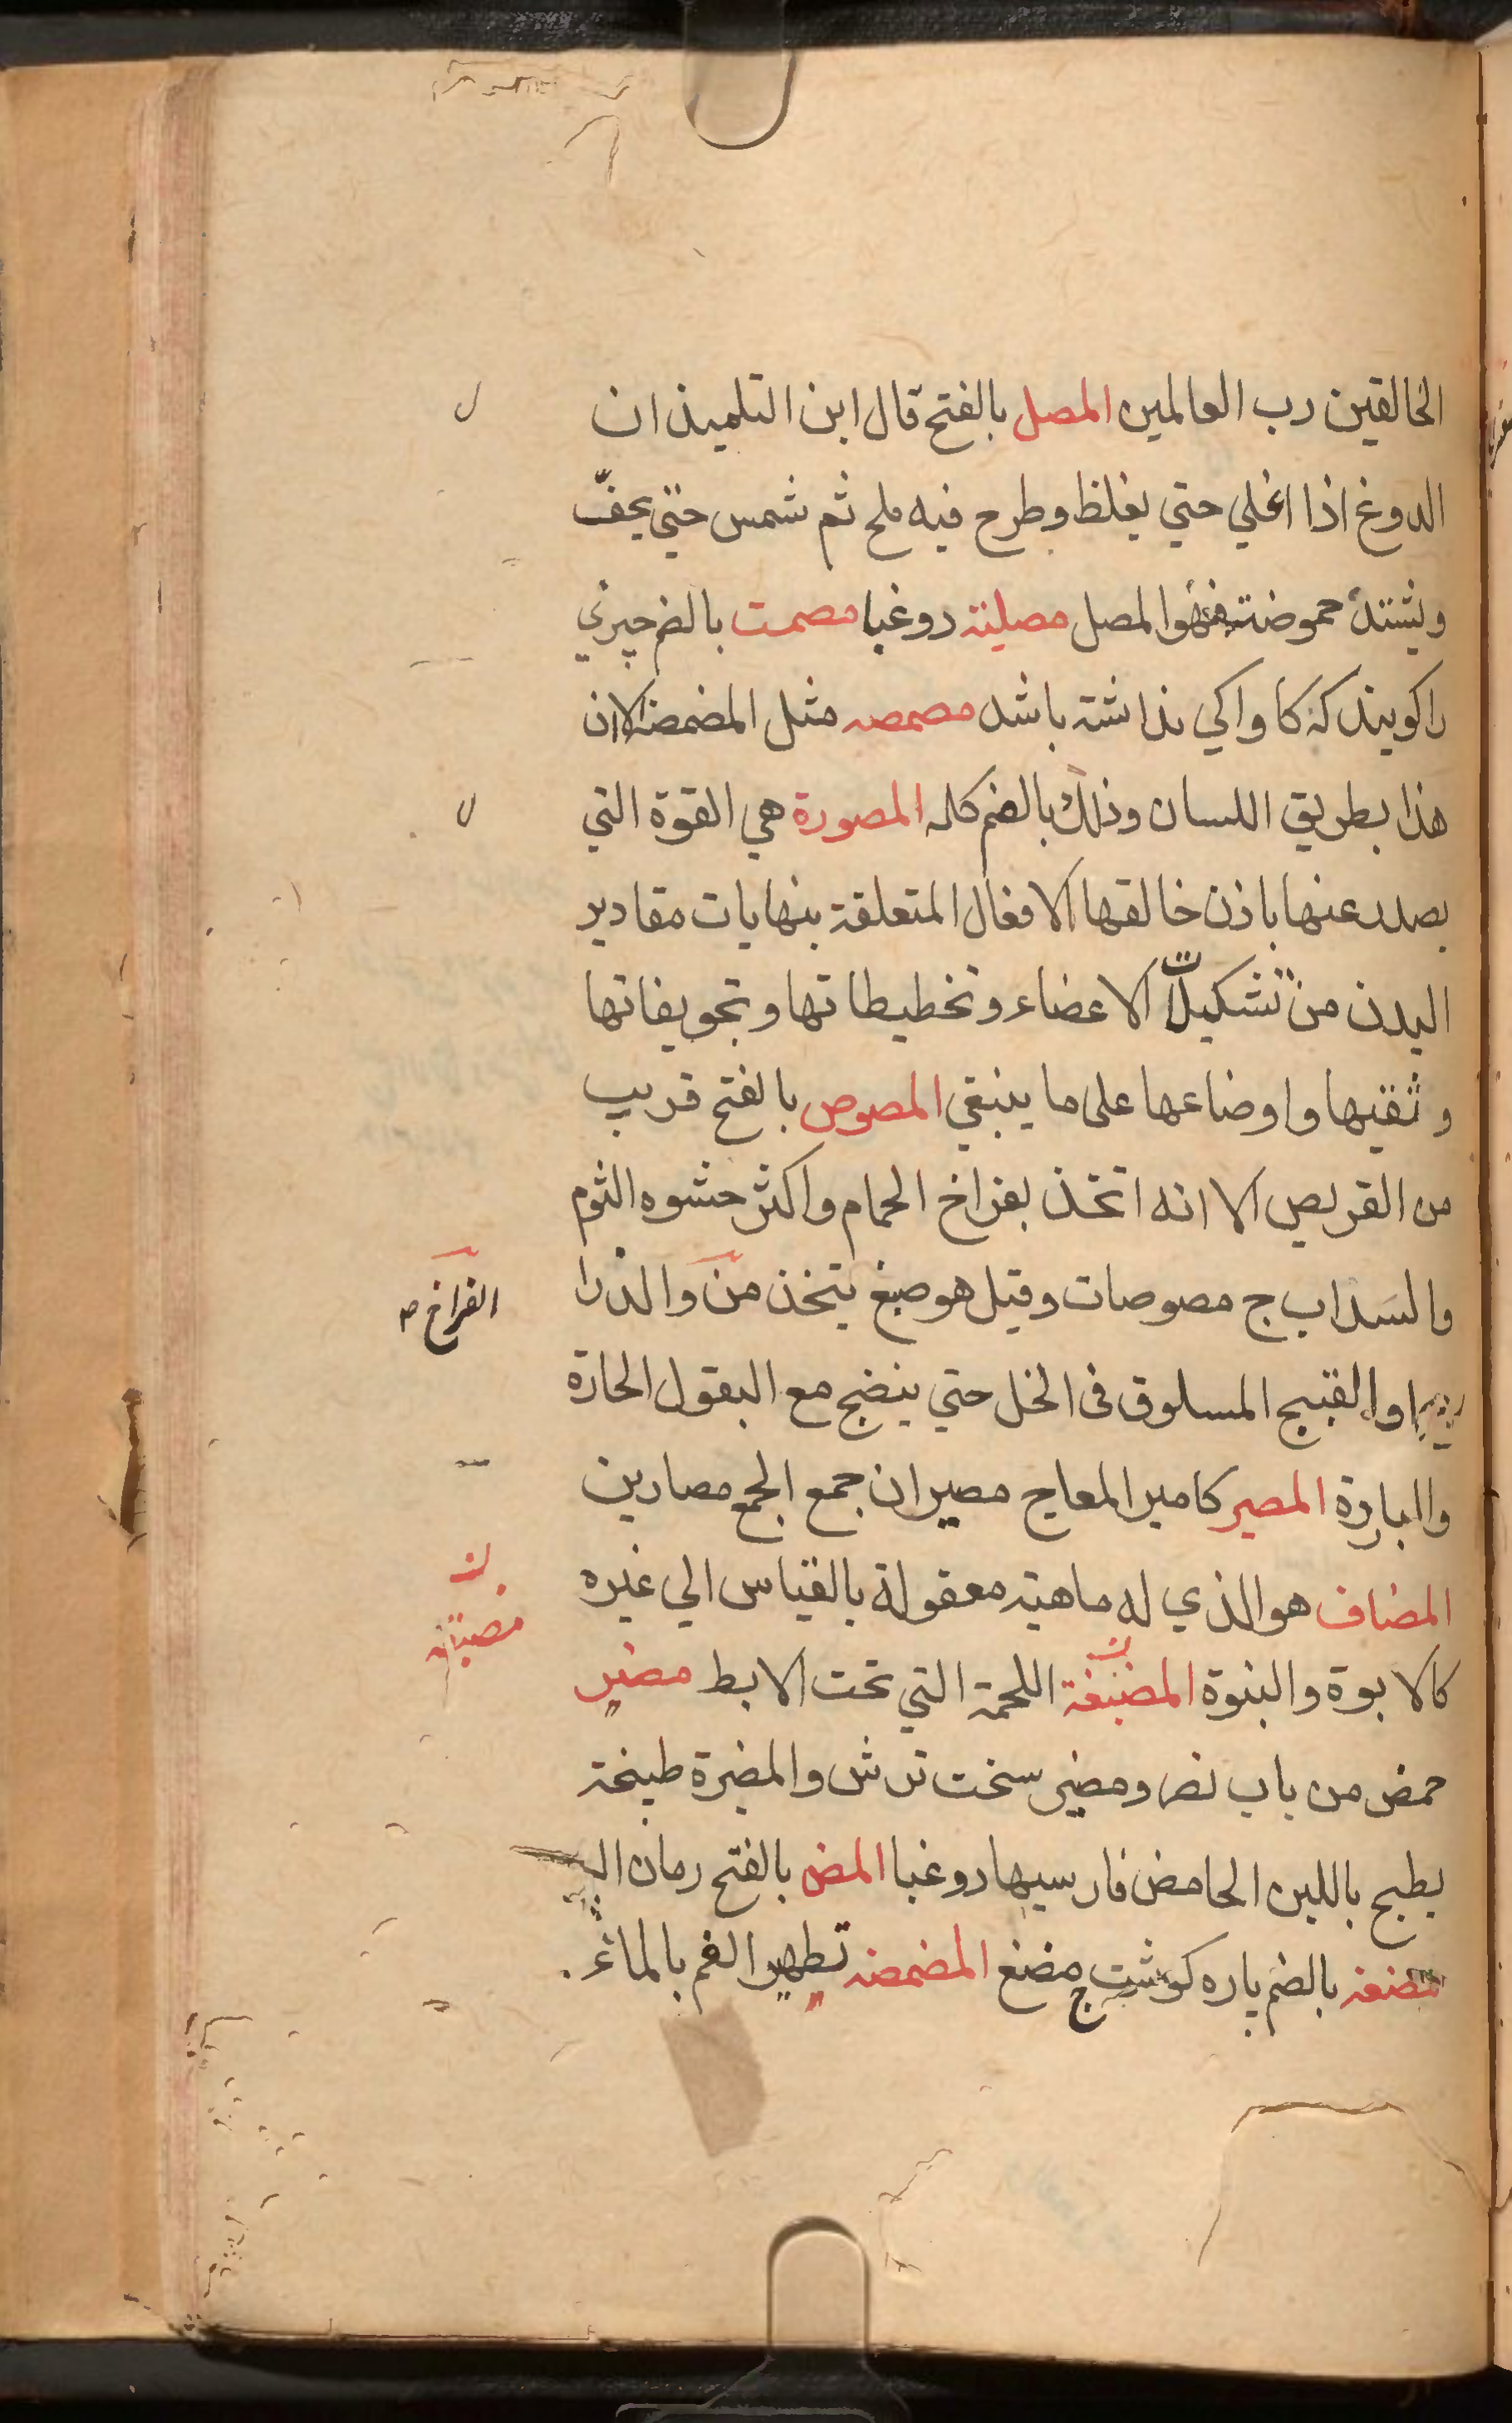 الخالقين رب العالمين المصل بالفتح قال ابن التلميذ ان
الدوغ اذا اغلي حتي يغلظ وطرح فيه ملح ثم شمس حتي يجفّ
ويشتدّ حموضته فهو المصل مصلية دوغبا مصمت بالضم چيزي
را كويند كه كاواكي نداشته باشد مصمصه مثل المضمضة الا ان
هذا بطريق اللسان وذلك بالضم كله المصورة هي القوة التي
يصدر عنها باذن خالقها الافعال المتعلقة بنهايات مقادير
البدن من تشكيلات الاعضاء وتخطيطاتها وتجويفاتها
وثقبها واوضاعها على ما ينبغي المصوص بالفتح قريب
من القريص الا انه اتخذ بفراخ الحمام واكثر حشوه الثوم
والسداب ج مصوصات وقيل هو صبغ يتخذ من والدرا
الفراخ ص
والقبج المسلوق فى الخل حتي ينضج مع البقول الحارة
والباردة المصير كامير المعا ج مصيران جمع الجمع مصارين
المضاف هو الذي له ماهية معقولة بالقياس الي غيره
كالابوة والبنوة المضبغة اللحمة التي تحت الابط مضير
حمض من باب نصر ومضير سخت ترش والمضيرة طبيخة
يطبح باللبن الحامض فارسيها دوغبا المض بالفتح رمان البر
مضغه بالضم پاره كوشت ج مضغ المضمضه تطهير الفم بالماء